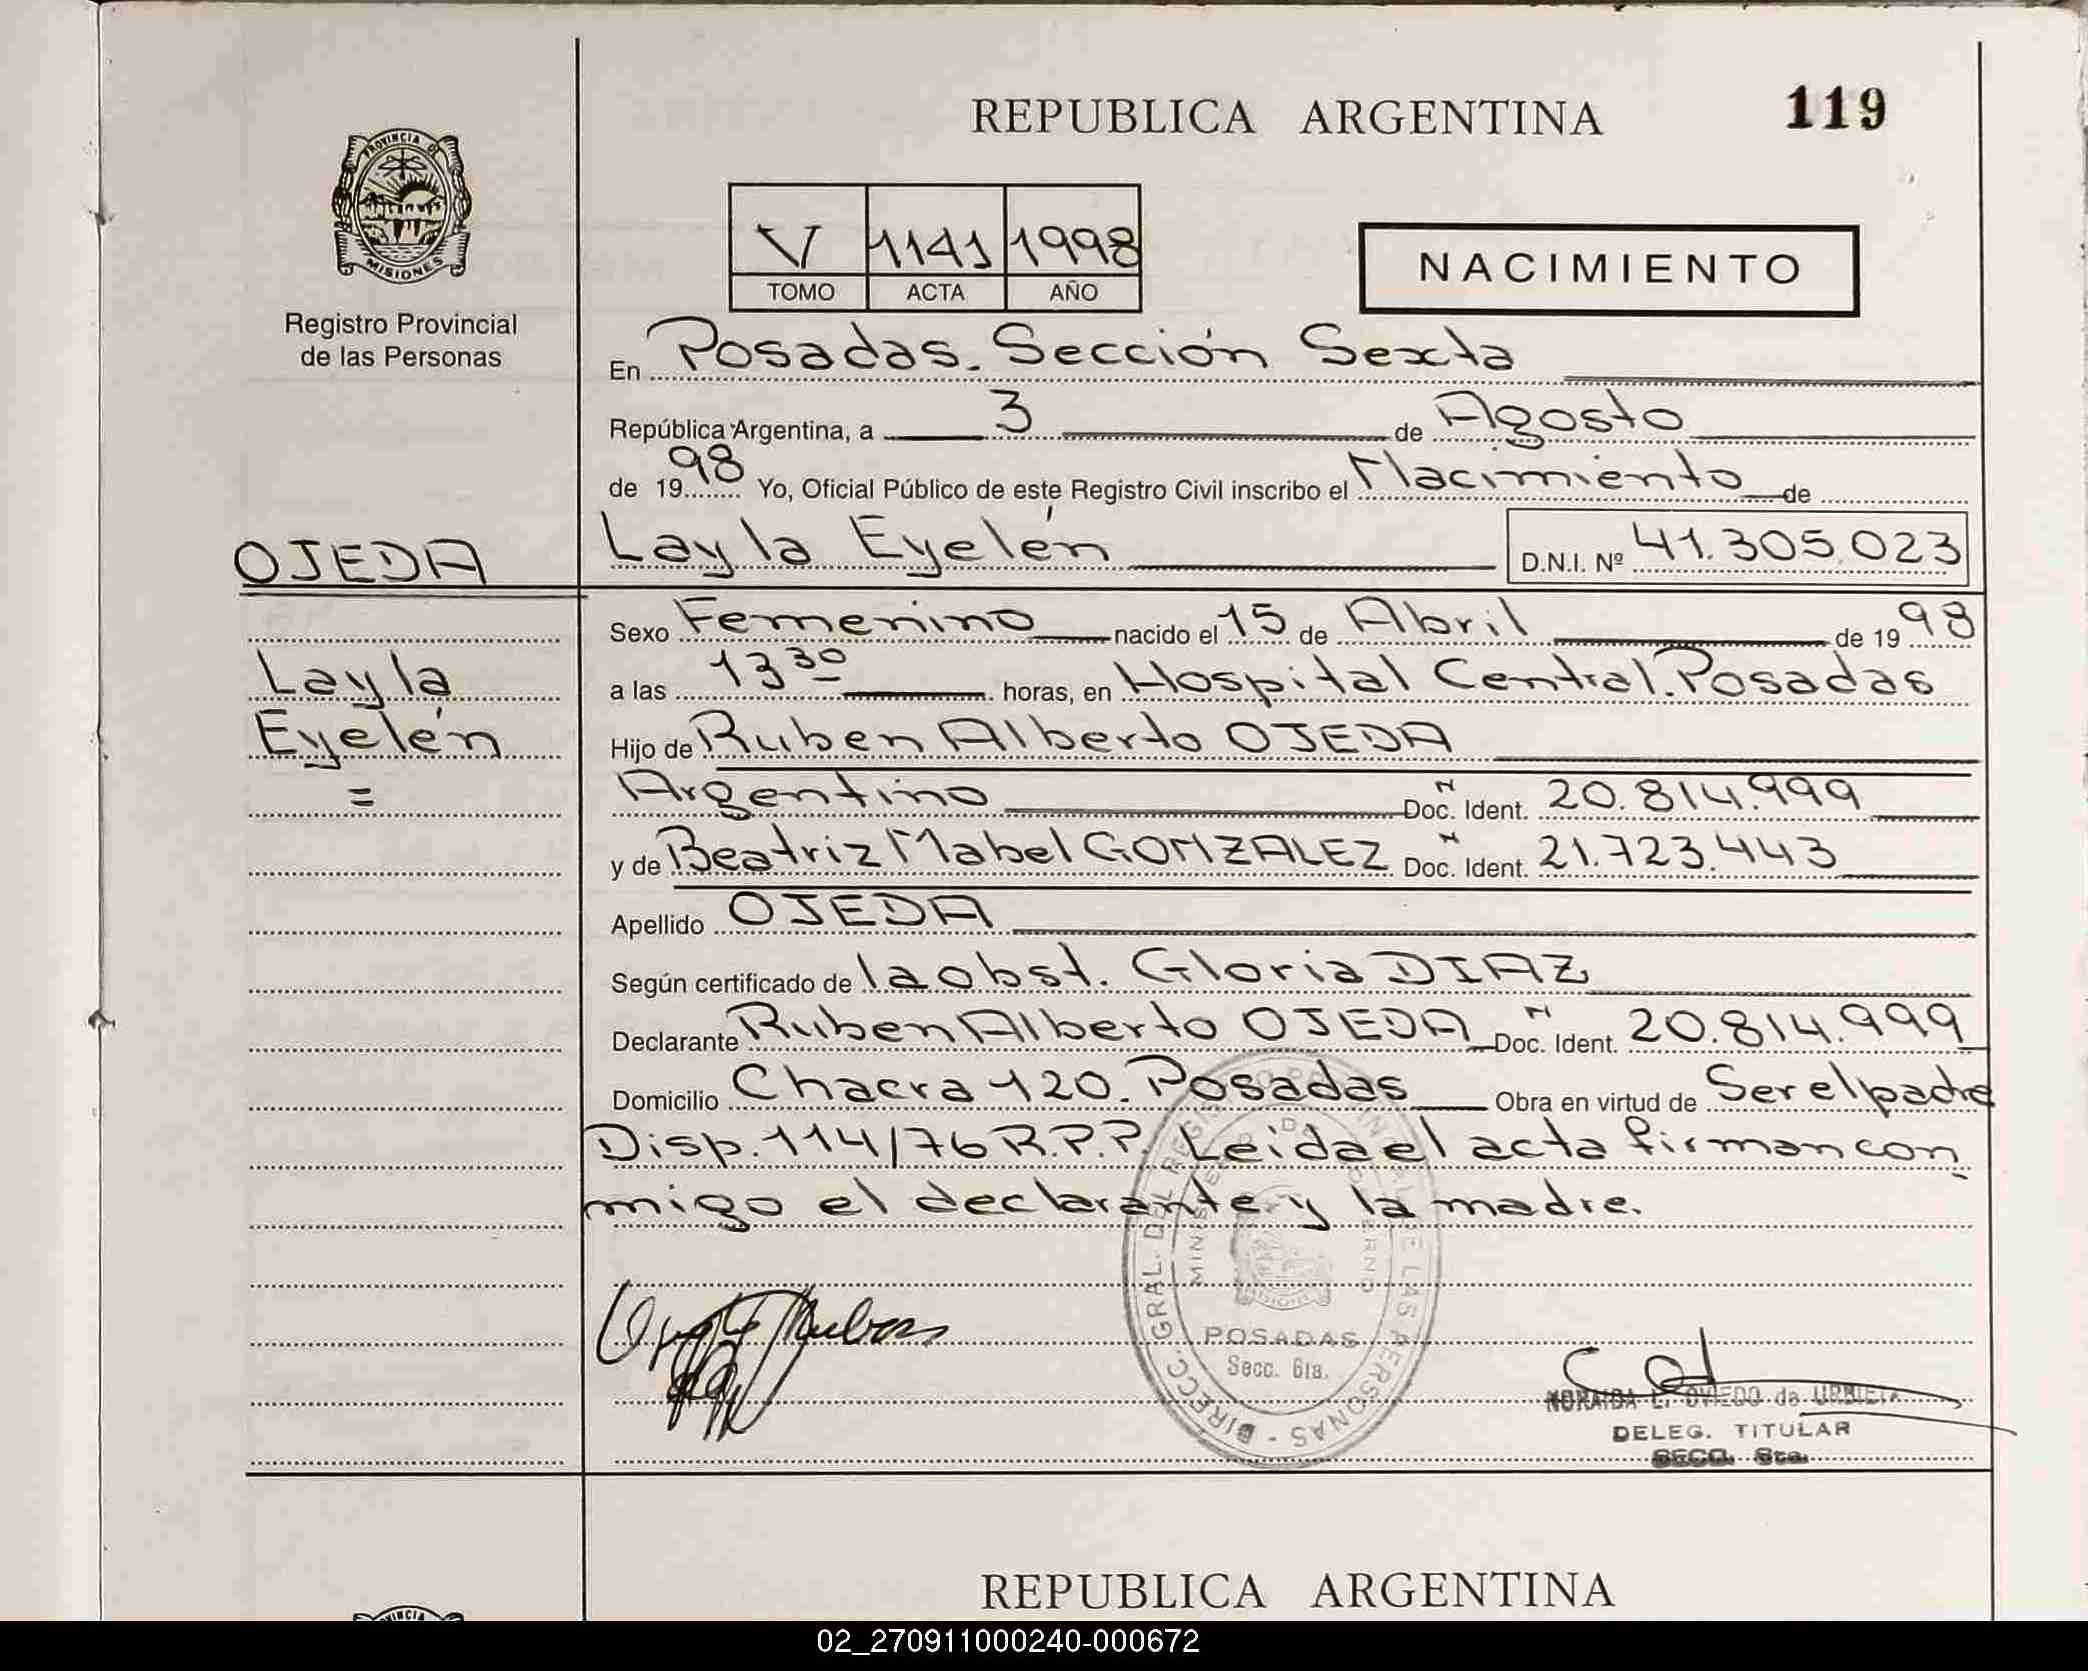 REPUBLICA ARGENTINA
119
PROVINCIA DE
MISIONES
Registro Provincial
de las Personas
V 1141 1998
TOMO ACTA AÑO
NACIMIENTO
En Posadas. Sección Sexta
República Argentina, a 3 de Agosto
de 1998 Yo, Oficial Público de este Registro Civil inscribo el Nacimiento de
OJEDA
Layla Eyelén D.N.I. Nº 41.305.023
Sexo Femenino nacido el 15 de Abril de 1998
Layla
Eyelén
=
a las 13 30 horas, en Hospital Central. Posadas
Hijo de Ruben Alberto OJEDA
Argentino Doc. Ident. 20.814.999
y de Beatriz Mabel GONZALEZ Doc. Ident. 21.723.443
Apellido OJEDA
Según certificado de la obst. Gloria DIAZ
Declarante Ruben Alberto OJEDA Doc. Ident. 20.814.999
Domicilio Chacra 120. Posadas Obra en virtud de Ser el padre
Disp. 114/76 R.P.P. Leida el acta firman con
migo el declarante y la madre.
DIRECC. GRAL. DEL REGISTRO PROVINCIAL DE LAS PERSONAS
MINISTERIO DE GOBIERNO
POSADAS
Secc. 6ta.
NORAIDA L. OVIEDO de URBIETA
DELEG. TITULAR
REPUBLICA ARGENTINA
02_270911000240-000672